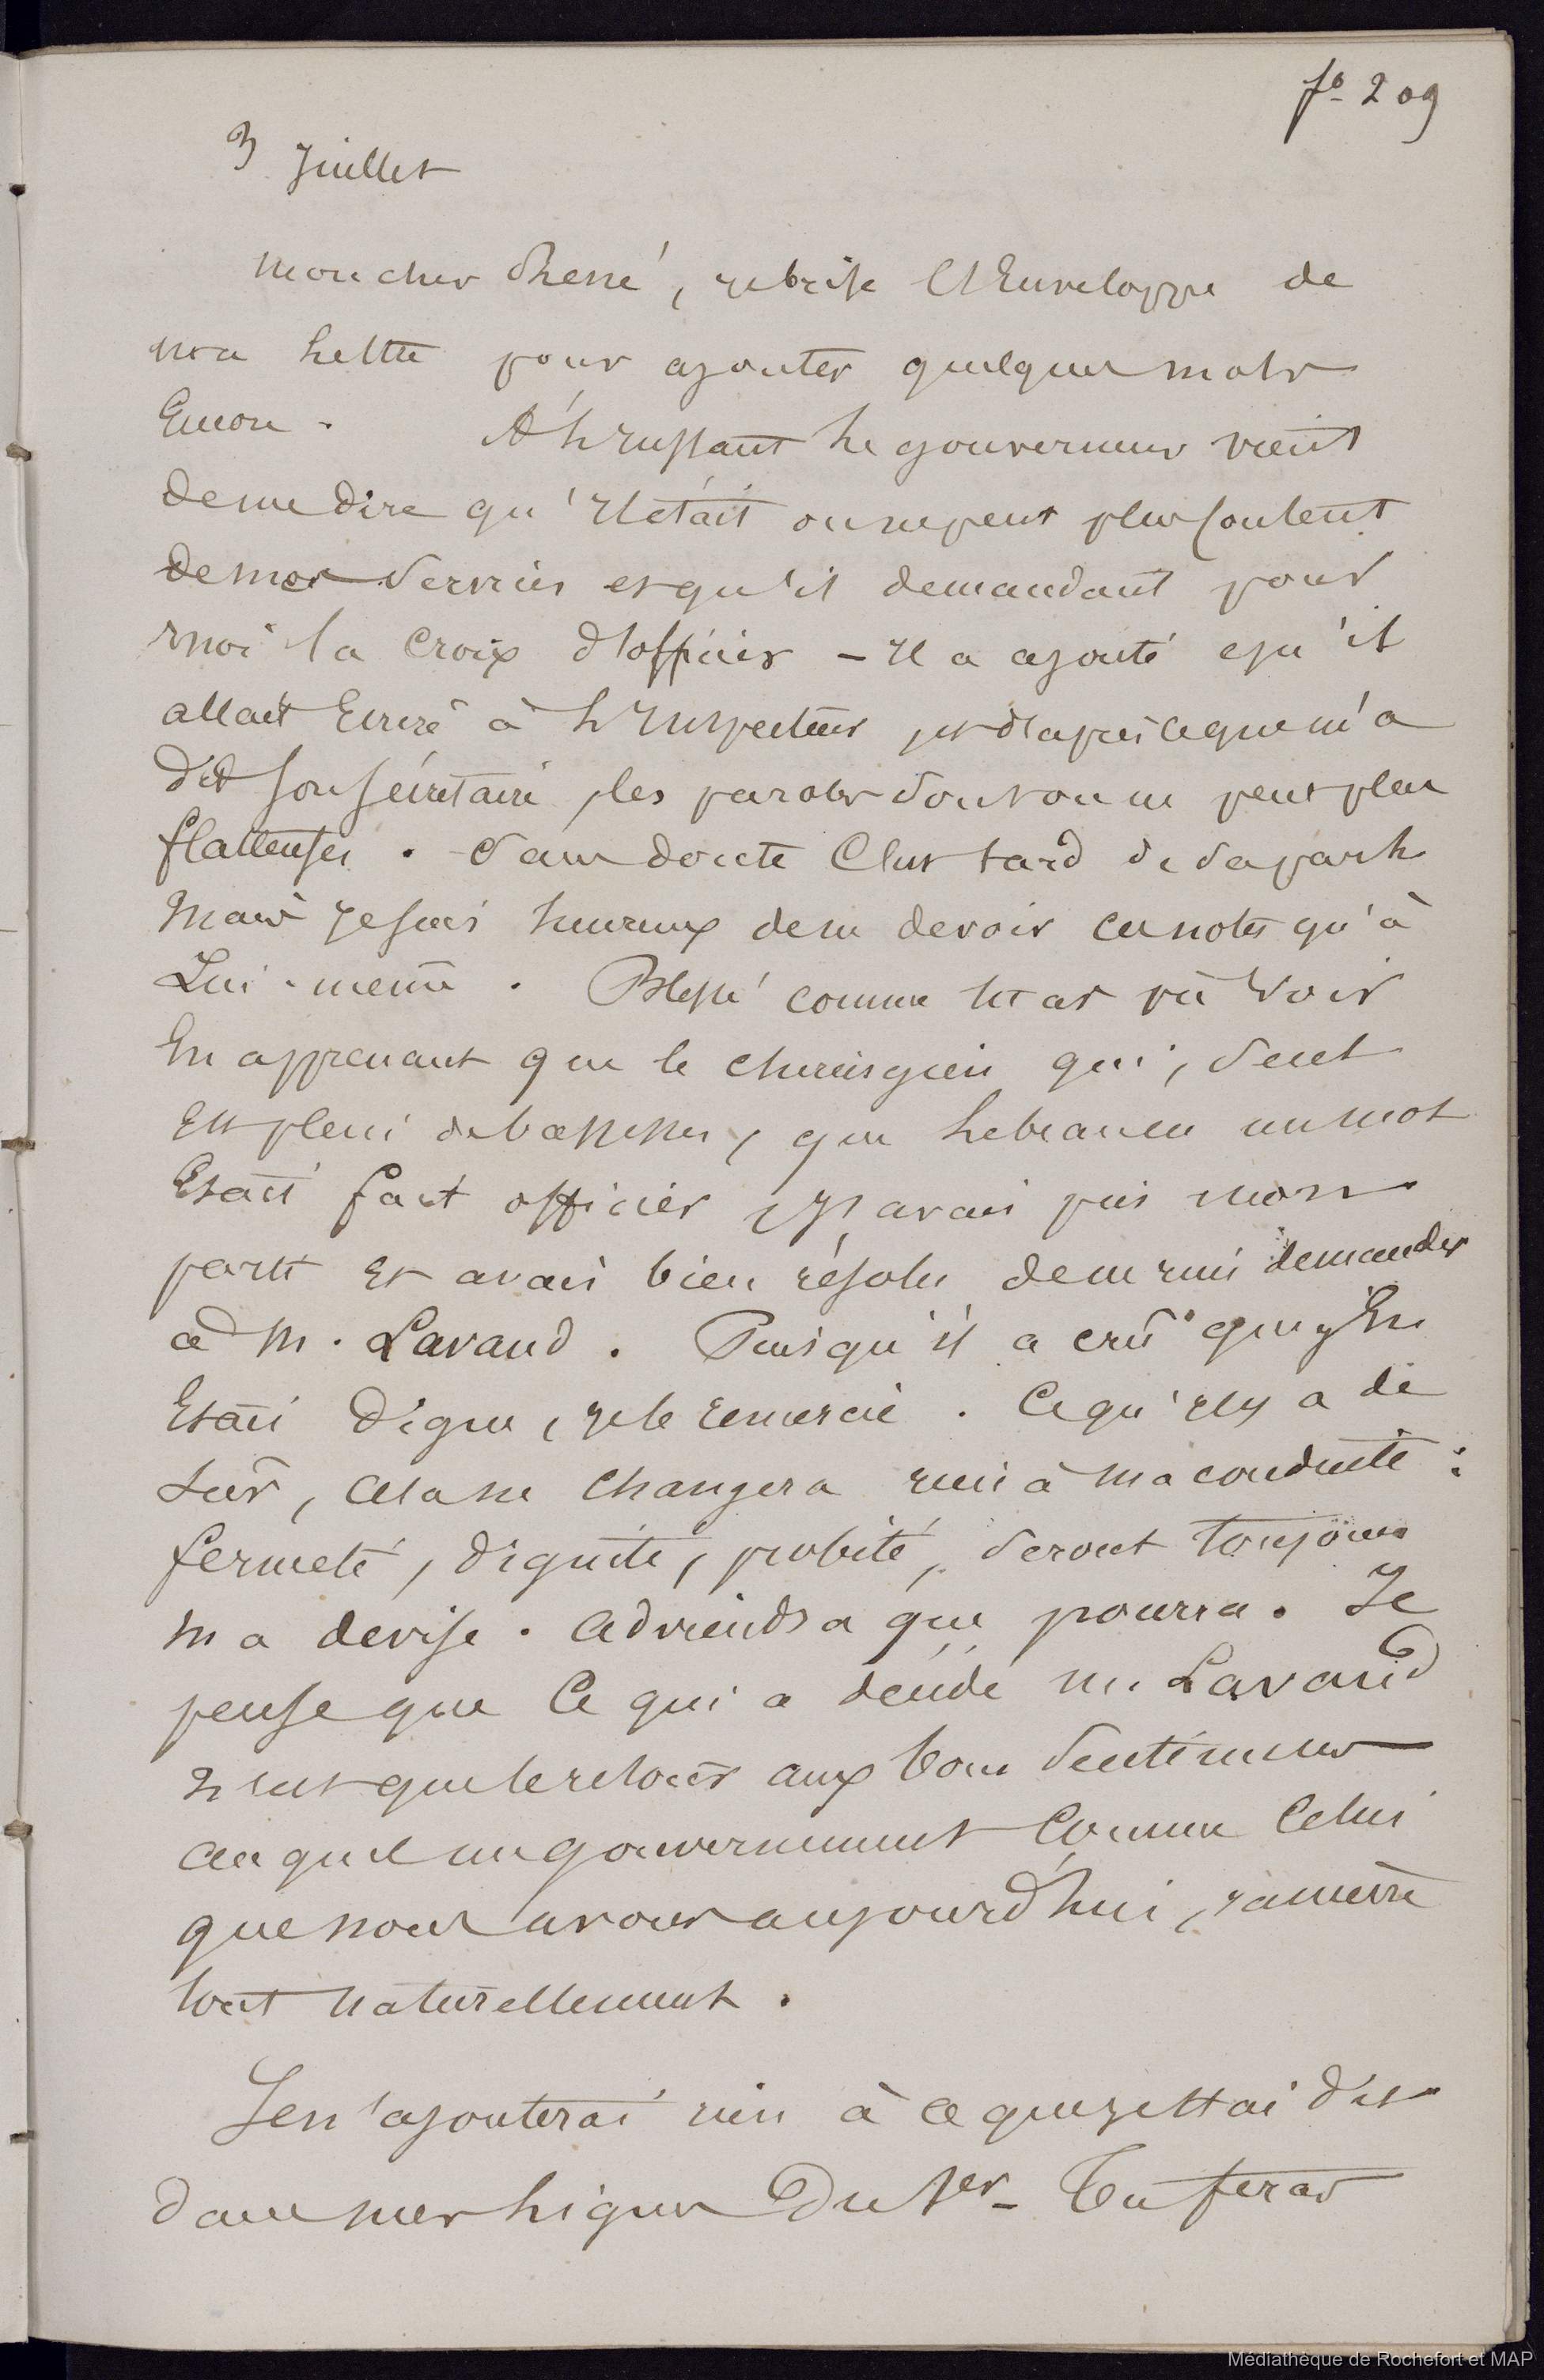 fo 209
3 Juillet
Mon cher René, je brise l'Enveloppe de
ma lettre pour ajouter quelques mots
Encore. A l'Instant le gouverneur vient
de me dire qu'Il était on ne peut plus content
de mes services et qu'il demandait pour
moi la Croix d'officier - Il a ajouté qu'il
allait Ecrire à l'Inspecteur, et d'après ce que m'a
dit son secrétaire, les paroles sont on ne peut plus
flatteuses. Sans doute C'est tard de sa part
Mais je suis heureux de ne devoir ces notes qu'à
Lui-même. Blessé comme tu as pû voir
En apprenant que le chirurgien qui, seul
Est plein de bassesses, que en un mot
Etait fait officier, J'avais pris mon
parti Et avais bien résolu de ne rien demander
à M. Lavaud. Puisqu'il a crû que j'En
Etais digne, je le remercie. Ce qu'Il y a de
sûr, Cela ne Changera rien à ma conduite :
fermeté, dignité, probité, seront toujours
ma devise. Adviendra que pourra. Je
pense que Ce qui a décidé M. Lavaud
n'est que le retour aux bons sentiments
auquel un gouvernement Comme Celui
que nous avons aujourd'hui, ramène
tout naturellement.
Je n'ajouterai rien à ce que je t'ai dit
dans mes lignes Du 1er_ Tu feras
Médiathèque de Rochefort et MAP